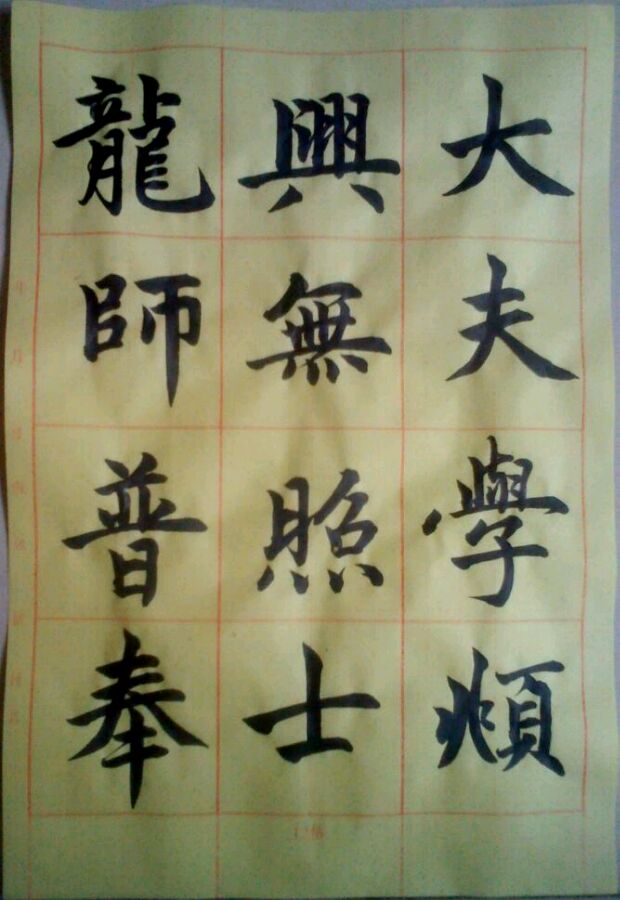 大夫學頫
興無照士
龍師普奉